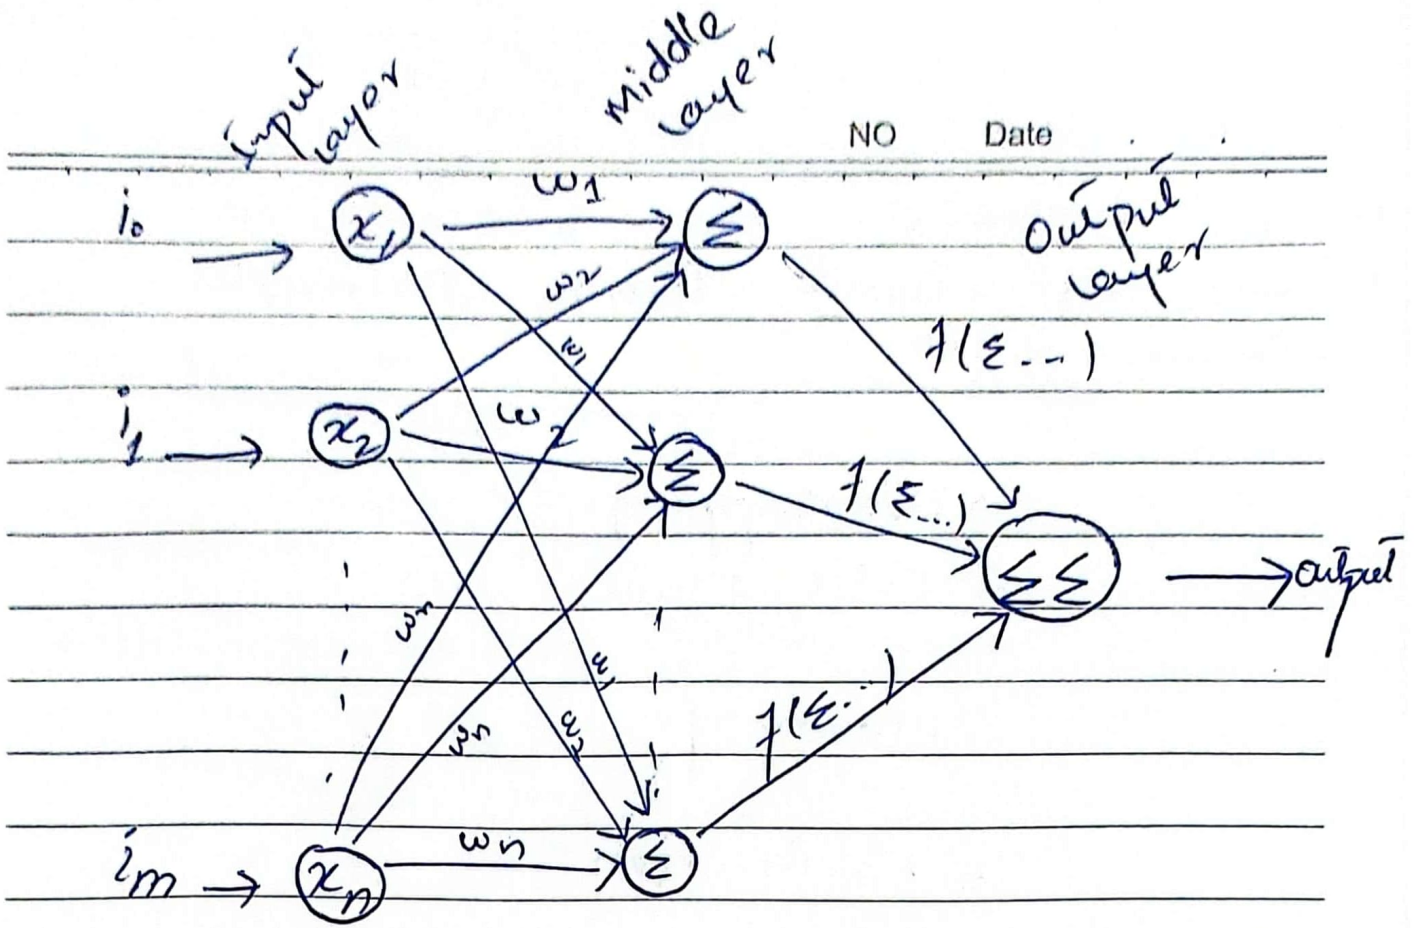 Input
Layer
Middle
Layer
NO Date
i₀
x₁
w₁
Σ
Output
Layer
w₂
w₁
f(Σ---)
i₁
x₂
w₂
Σ
f(Σ...)
ΣΣ
output
wₙ
w₁
wₙ
w₂
f(Σ...)
iₘ
xₙ
wₙ
Σ